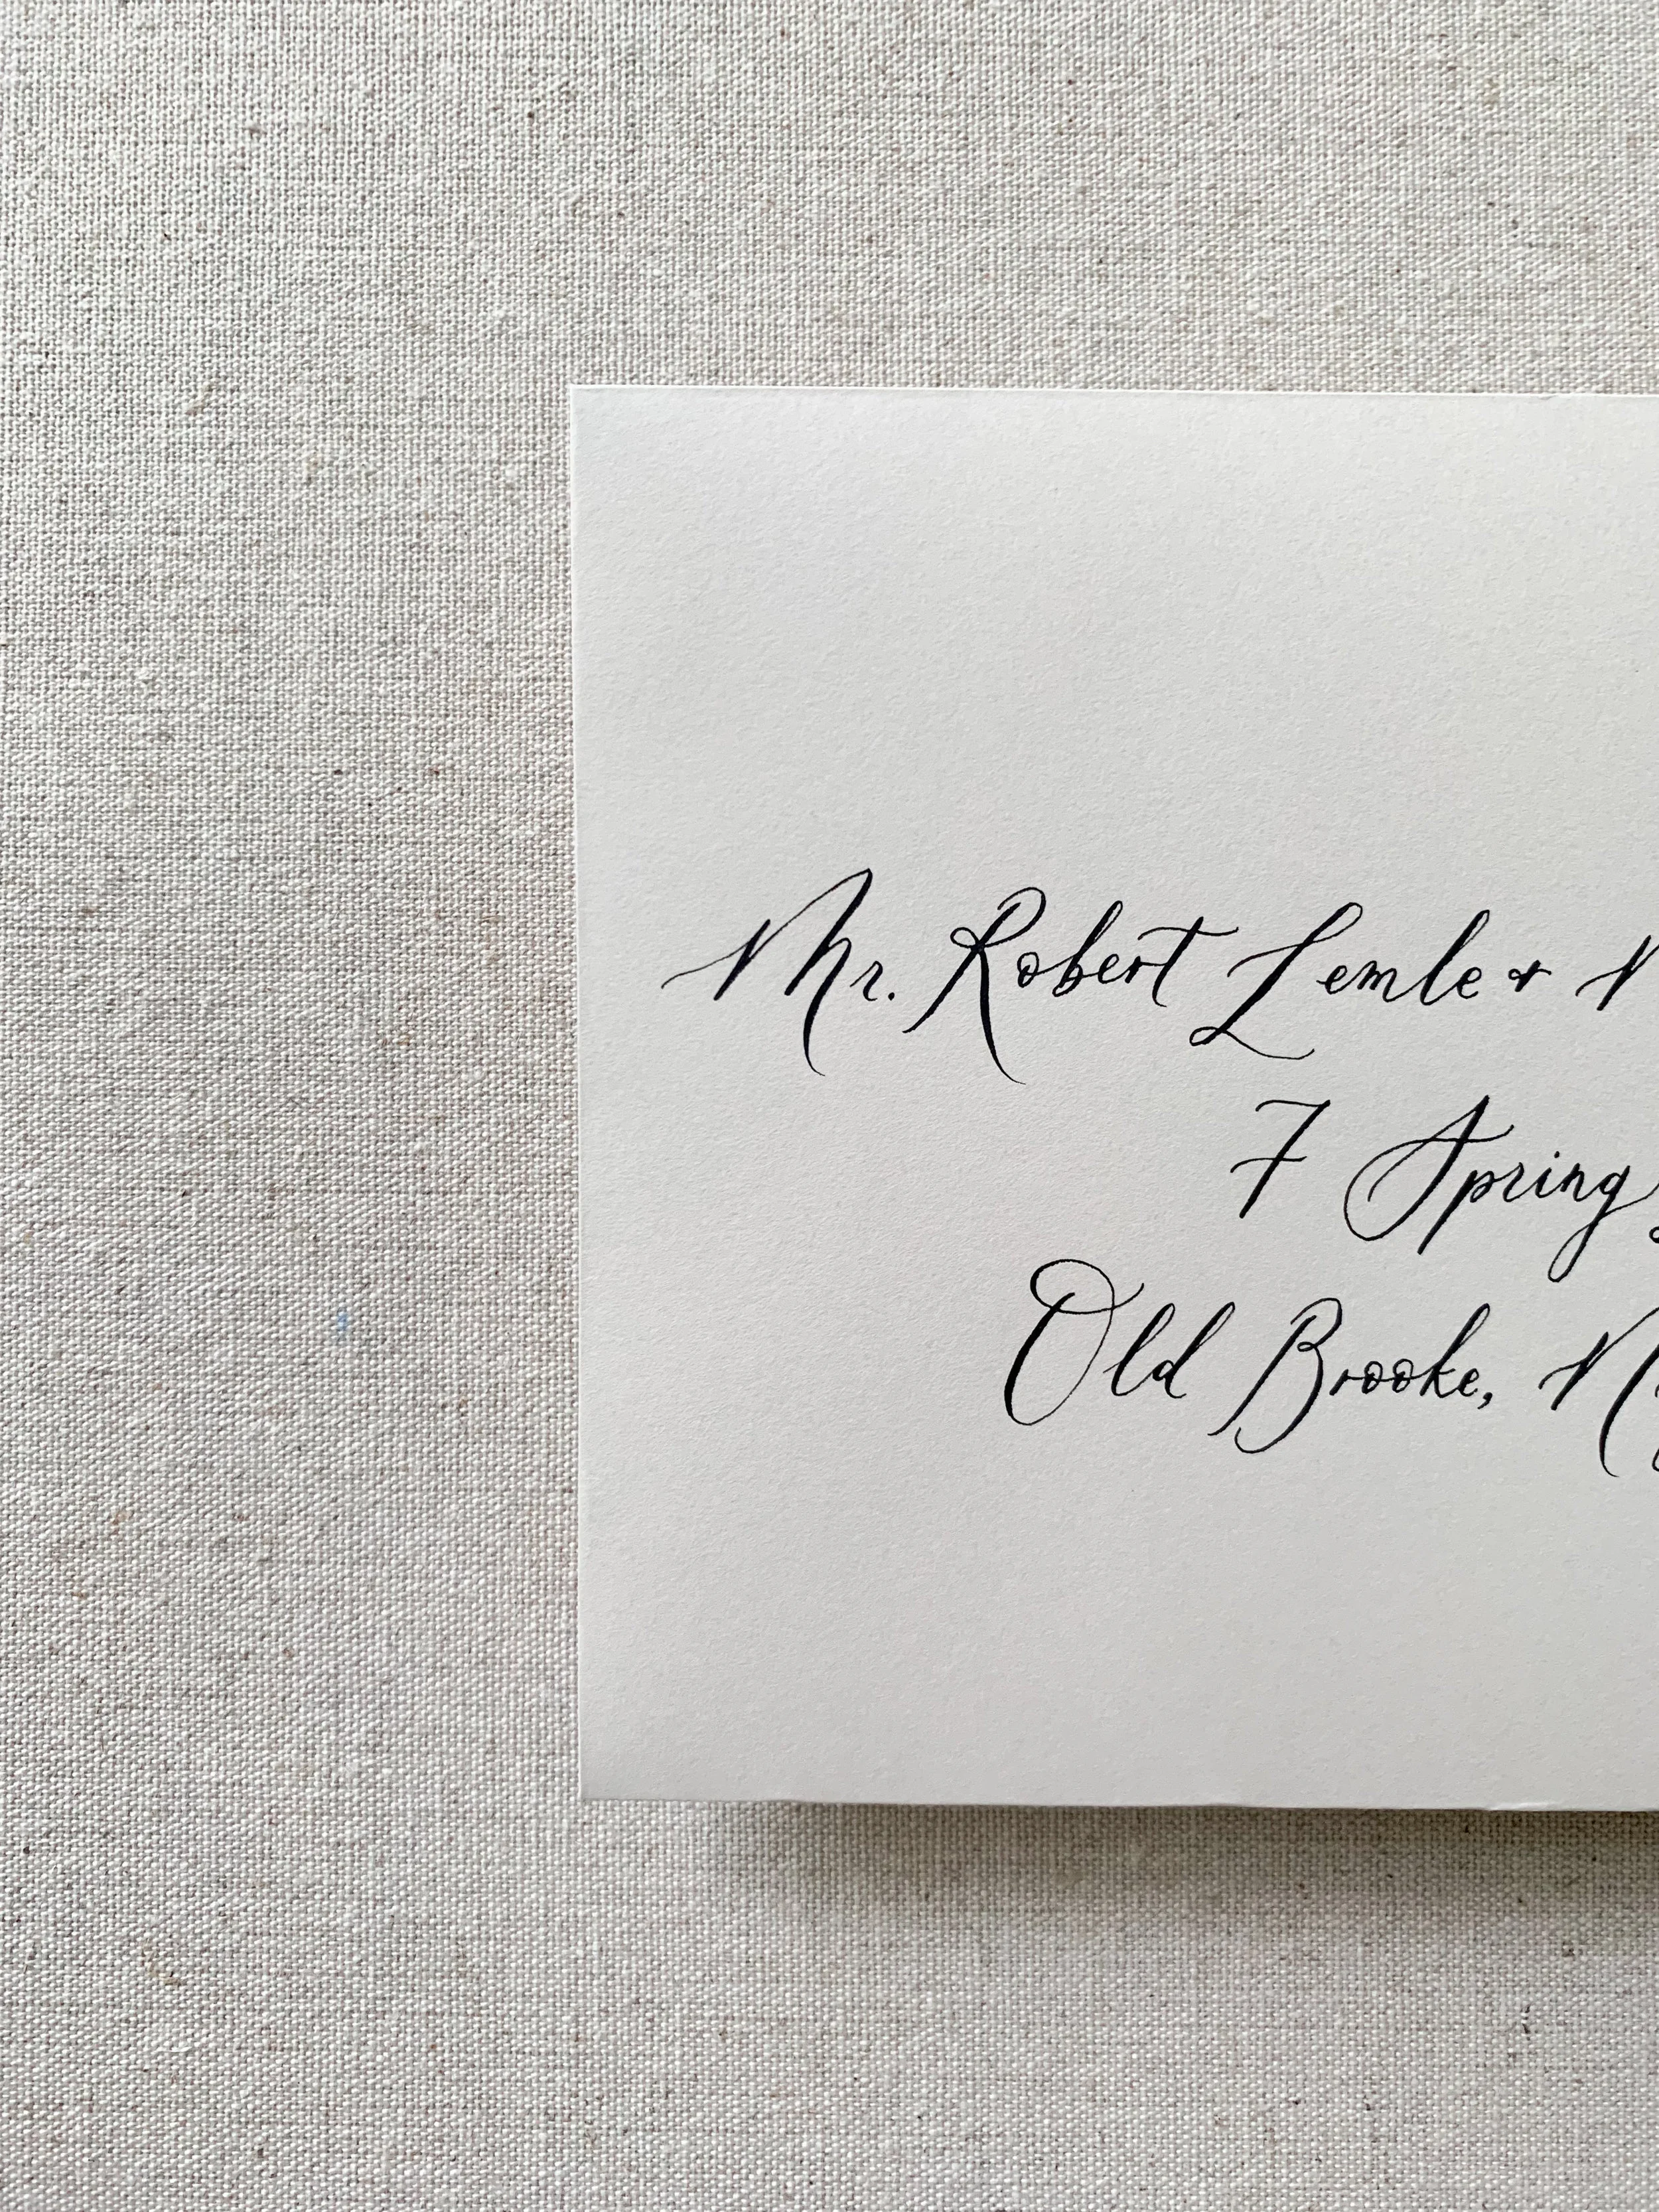 Mr. Robert Lemle &
7 Spring
Old Brooke,